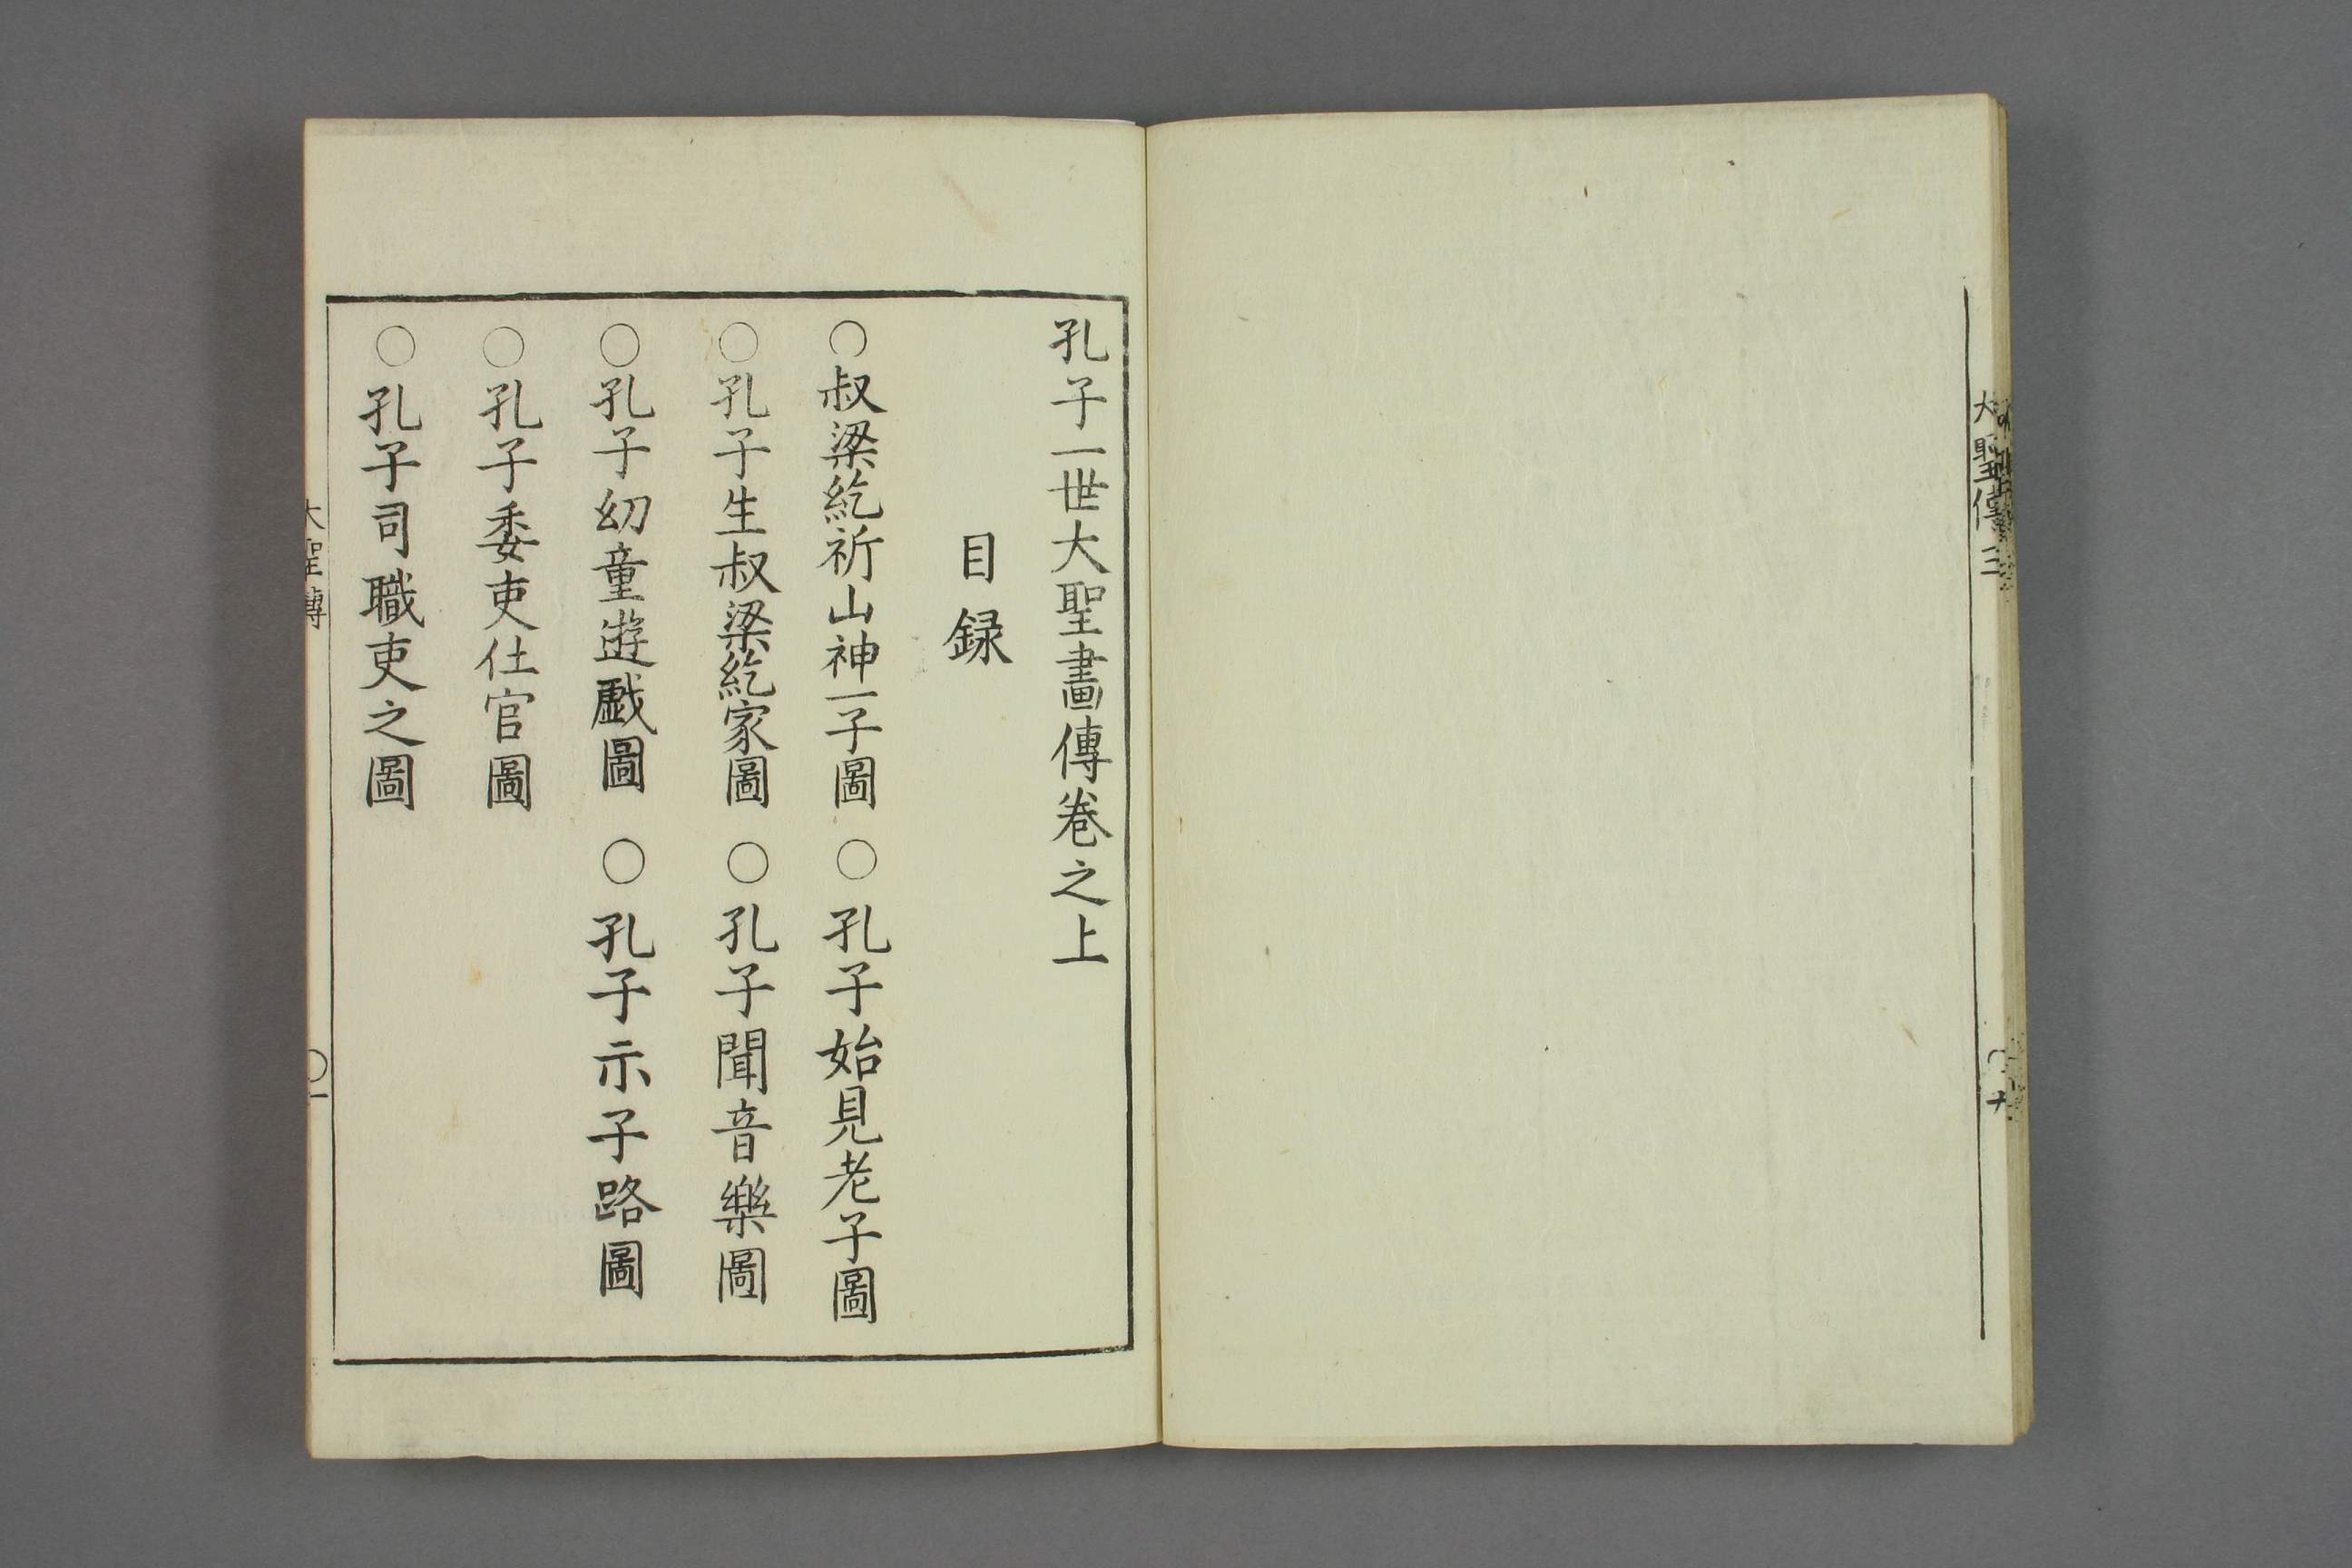 大聖傳三
孔子一世大聖畫傳卷之上
目録
○叔梁紇祈山神一子圖 ○孔子始見老子圖
○孔子生叔梁紇家圖 ○孔子聞音樂圖
○孔子幼童遊戯圖 ○孔子示子路圖
○孔子委吏仕官圖
○孔子司職吏之圖
大聖傳
○一